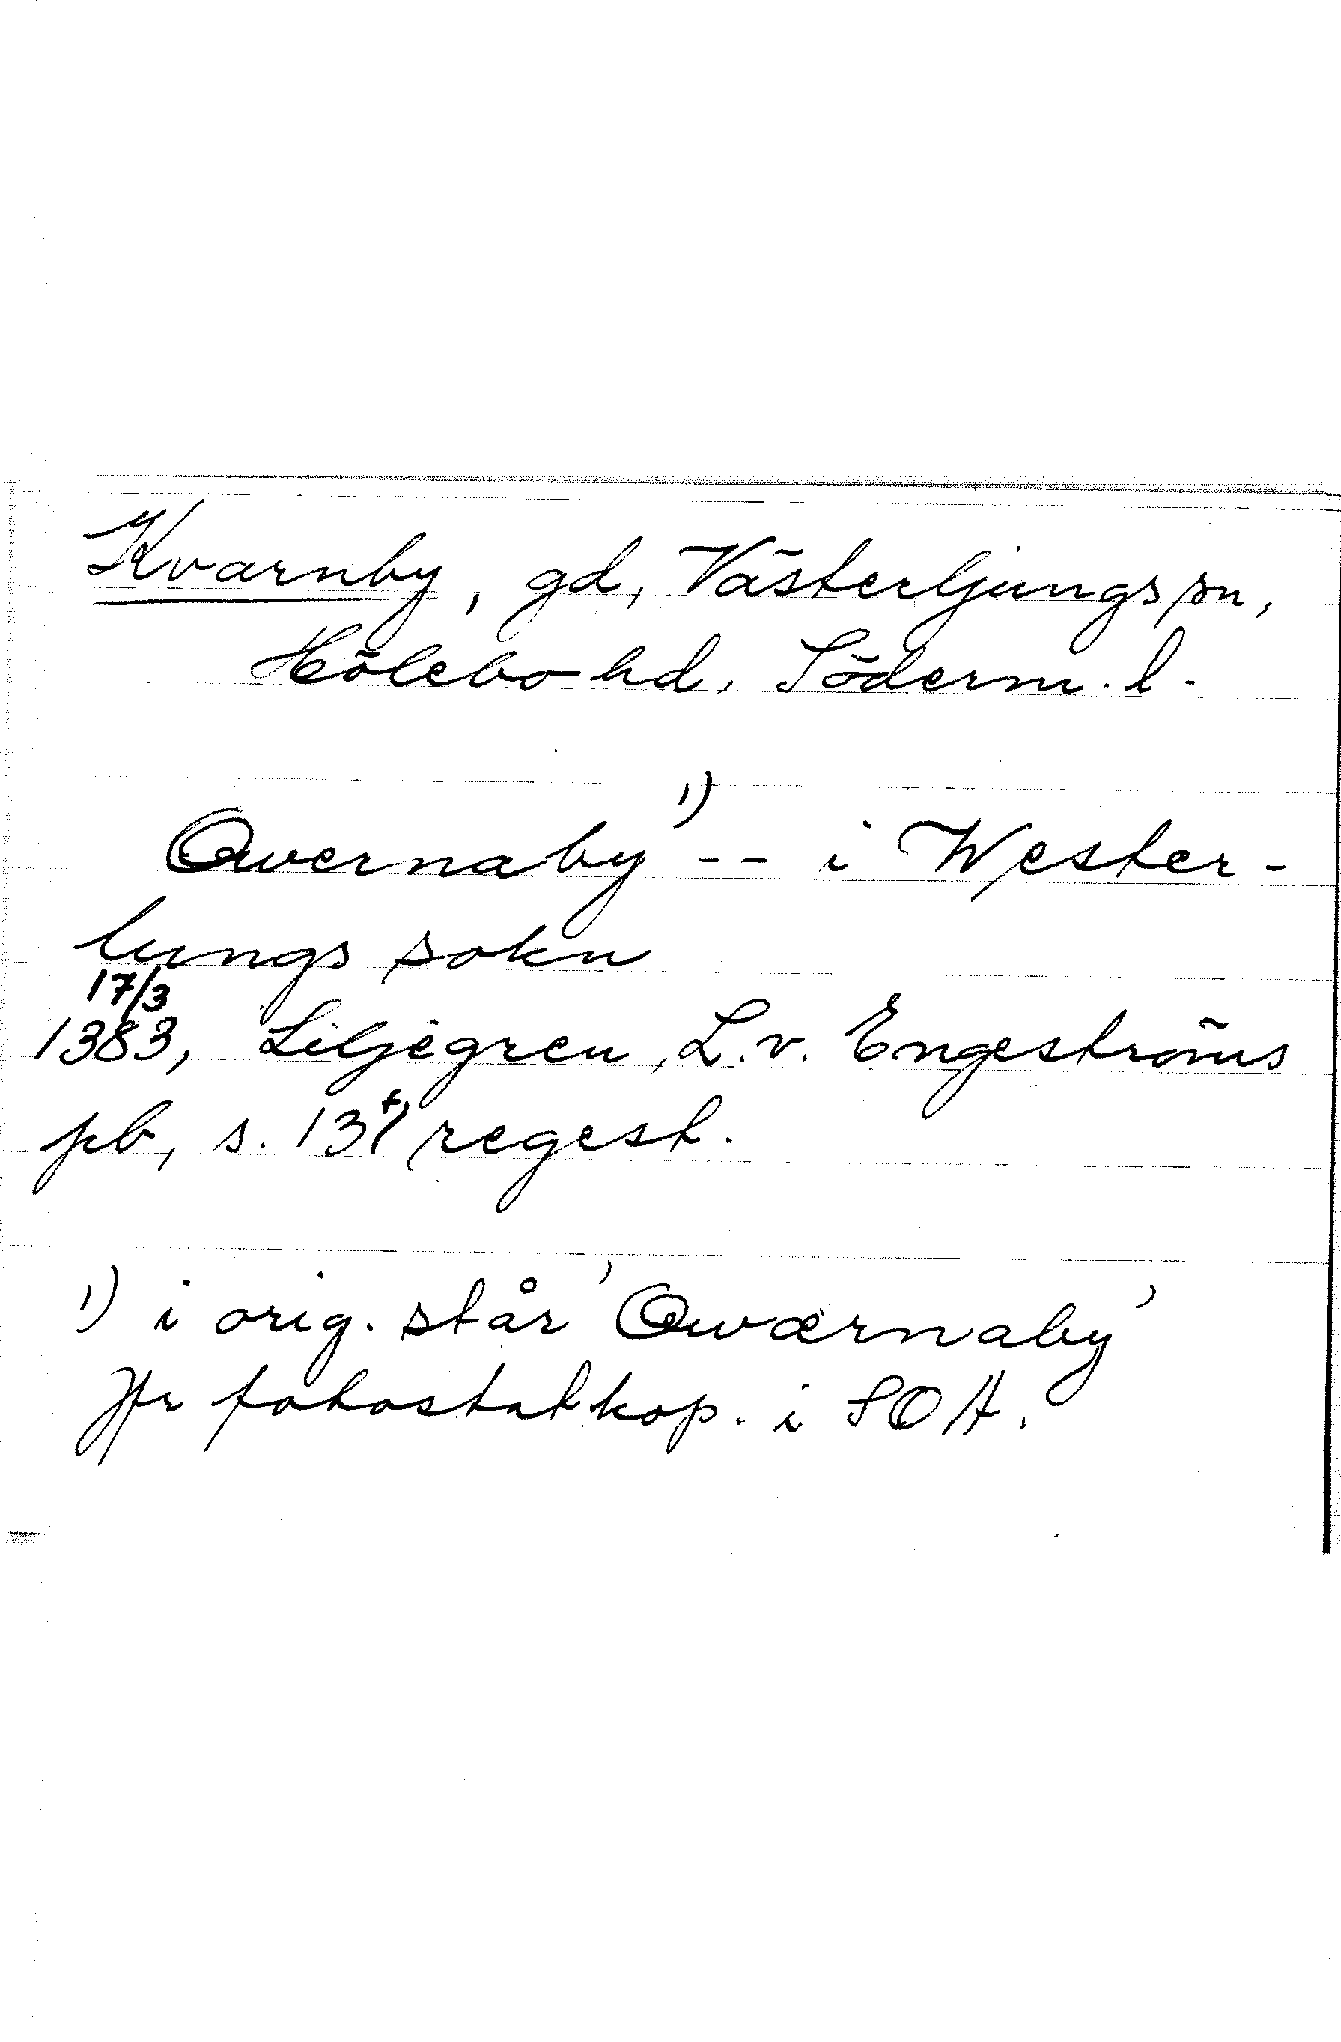 Kvarnby, gd, Västerljungs sn,
Hölebo hd, Söderm. l.
Qwernaby 1) -- i Wester-
lungs sokn
17/3
1383, Liljegren, L. v. Engeströms
pb, s. 13 regest.
1) i orig. står 'Qwærnaby'
Jfr fotostatkop. i SOA.